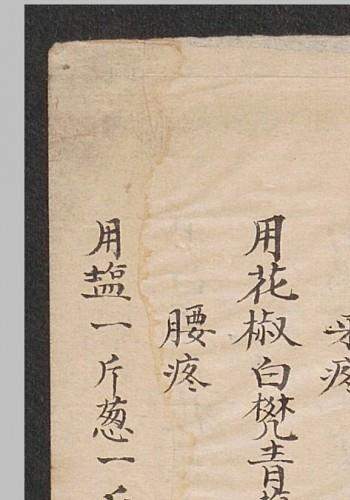 疼
用花椒白樊青
腰疼
用塩一斤葱一斤